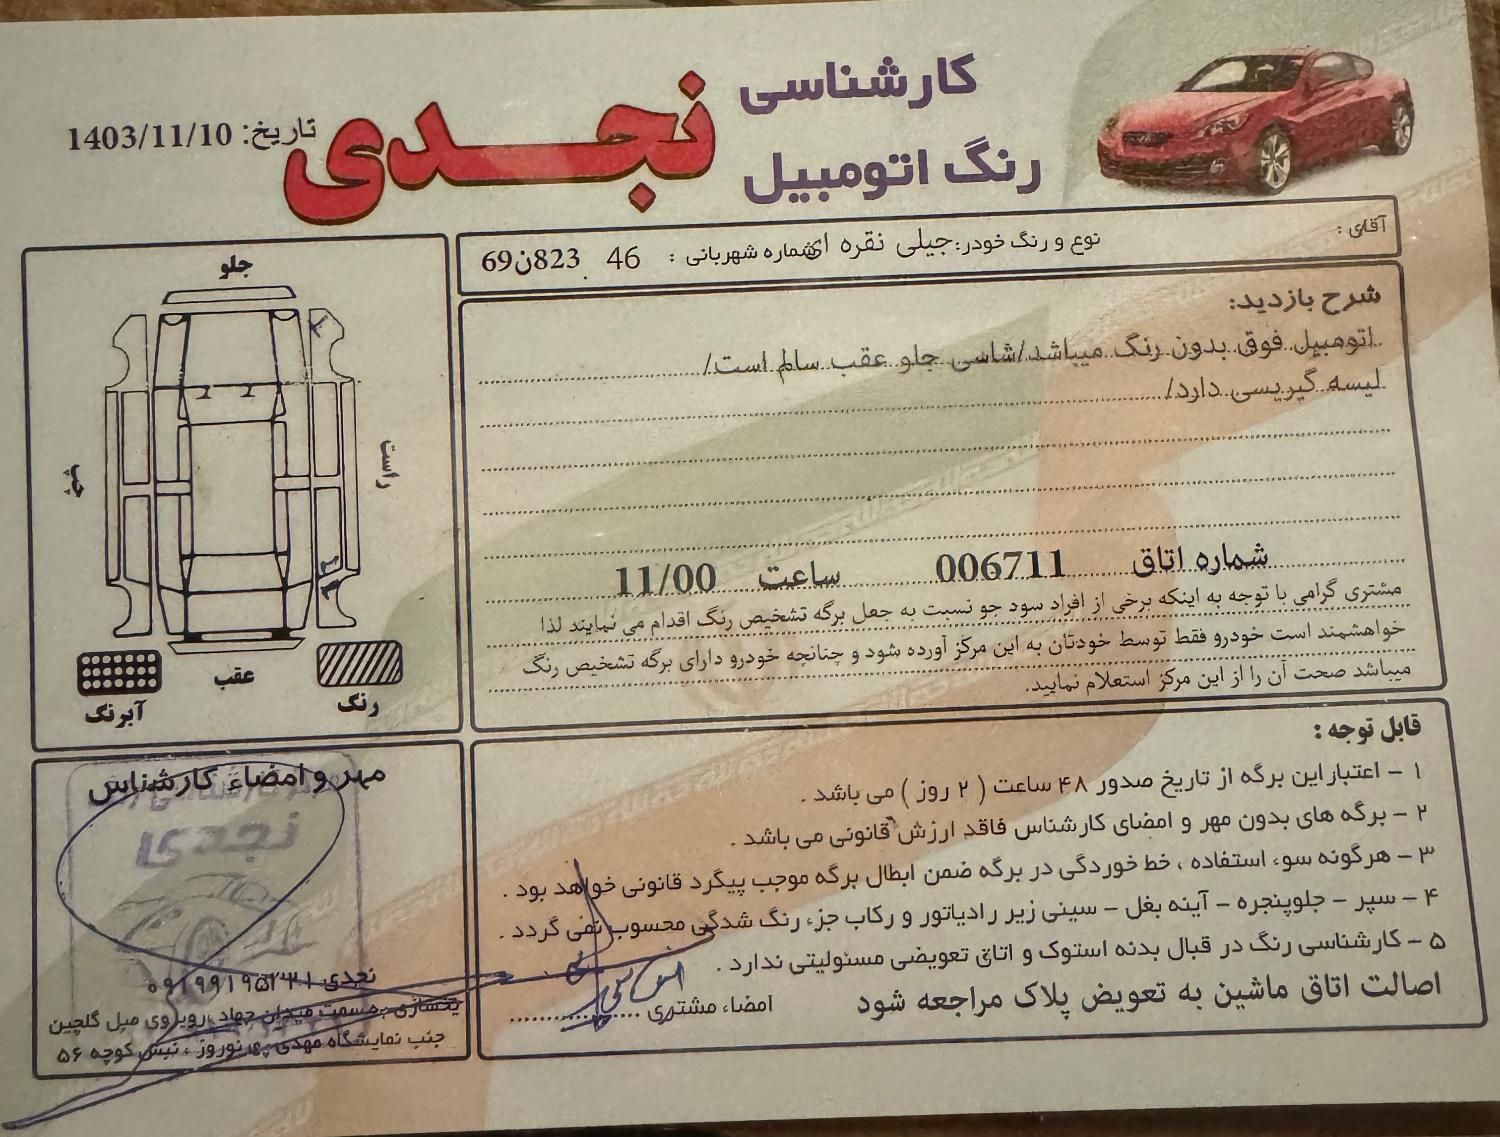 کارشناسی
رنگ اتومبیل
نجدی
تاریخ: 1403/11/10
آقای :
نوع و رنگ خودر: جیلی نقره ای شماره شهربانی : 46 823ن69
شرح بازدید:
اتومبیل فوق بدون رنگ میباشد/شاسی جلو عقب سالم است/
لیسه گیریسی دارد/
شماره اتاق 006711 ساعت 11/00
مشتری گرامی با توجه به اینکه برخی از افراد سود جو نسبت به جعل برگه تشخیص رنگ اقدام می نمایند لذا
خواهشمند است خودرو فقط توسط خودتان به این مرکز آورده شود و چنانچه خودرو دارای برگه تشخیص رنگ
میباشد صحت آن را از این مرکز استعلام نمایید.
جلو
چپ
راست
عقب
آبرنگ
رنگ
قابل توجه :
۱ - اعتبار این برگه از تاریخ صدور ۴۸ ساعت ( ۲ روز ) می باشد .
۲ - برگه های بدون مهر و امضای کارشناس فاقد ارزش قانونی می باشد .
۳ - هرگونه سوء استفاده ، خط خوردگی در برگه ضمن ابطال برگه موجب پیگرد قانونی خواهد بود .
۴ - سپر - جلوپنجره - آینه بغل - سینی زیر رادیاتور و رکاب جزء رنگ شدگی محسوب نمی گردد .
۵ - کارشناسی رنگ در قبال بدنه استوک و اتاق تعویضی مسئولیتی ندارد .
اصالت اتاق ماشین به تعویض پلاک مراجعه شود
امضاء مشتری
مهر و امضاء کارشناس
نجدی
نجدی ۰۹۱۹۹۱۹۵۳۳۱
یخسازی به سمت میدان جهاد ، روبروی مبل گلچین
جنب نمایشگاه مهدی پور نوروز ، نبش کوچه ۵۶